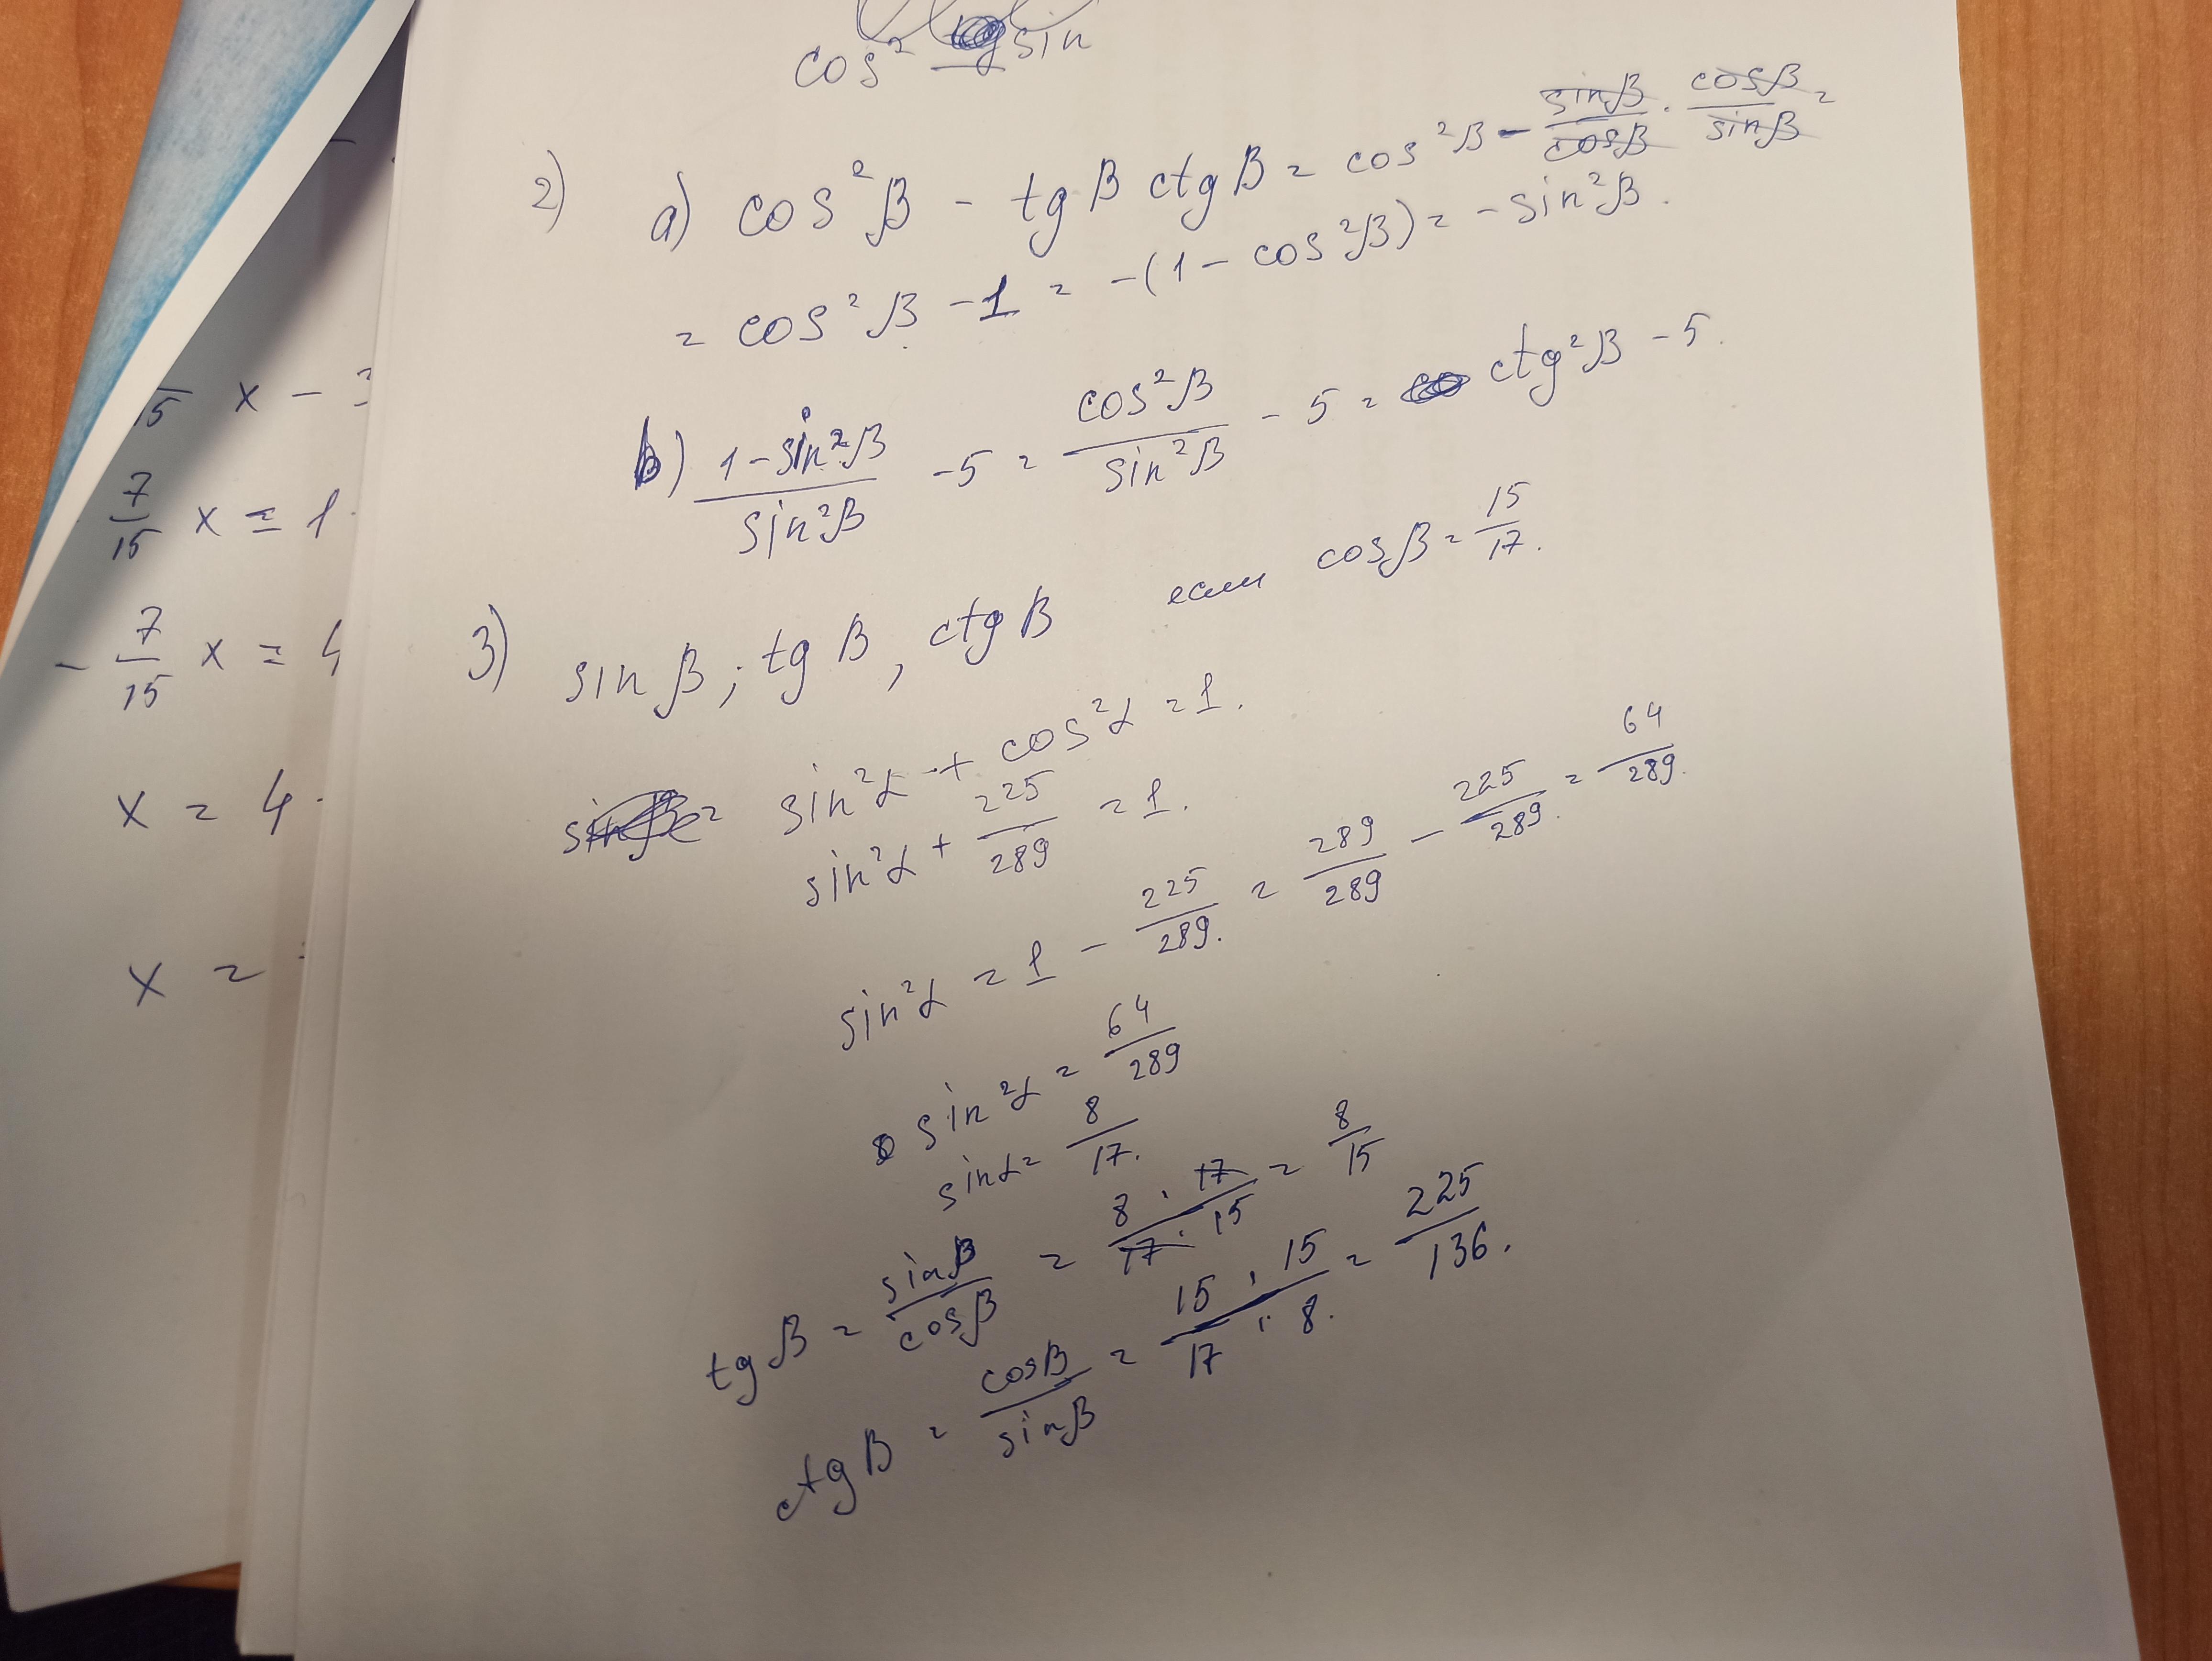 cos² sin
2) a) cos²β - tgβ ctgβ = cos²β - sinβ/cosβ · cosβ/sinβ =
= cos²β - 1 = -(1 - cos²β) = -sin²β.
b) (1-sin²β)/sin²β - 5 = cos²β/sin²β - 5 = ctg²β - 5.
3) sinβ; tgβ, ctgβ если cosβ = 15/17.
sin²α + cos²α = 1.
sin²α + 225/289 = 1.
sin²α = 1 - 225/289. = 289/289 - 225/289. = 64/289.
sin²α = 64/289
sinα = 8/17.
tgβ = sinβ/cosβ = (8 · 17)/(17 · 15) = 8/15
ctgβ = cosβ/sinβ = (15 · 15)/(17 · 8.) = 225/136.
15 x -
7/15 x = 1
- 7/15 x = 4
x = 4
x =